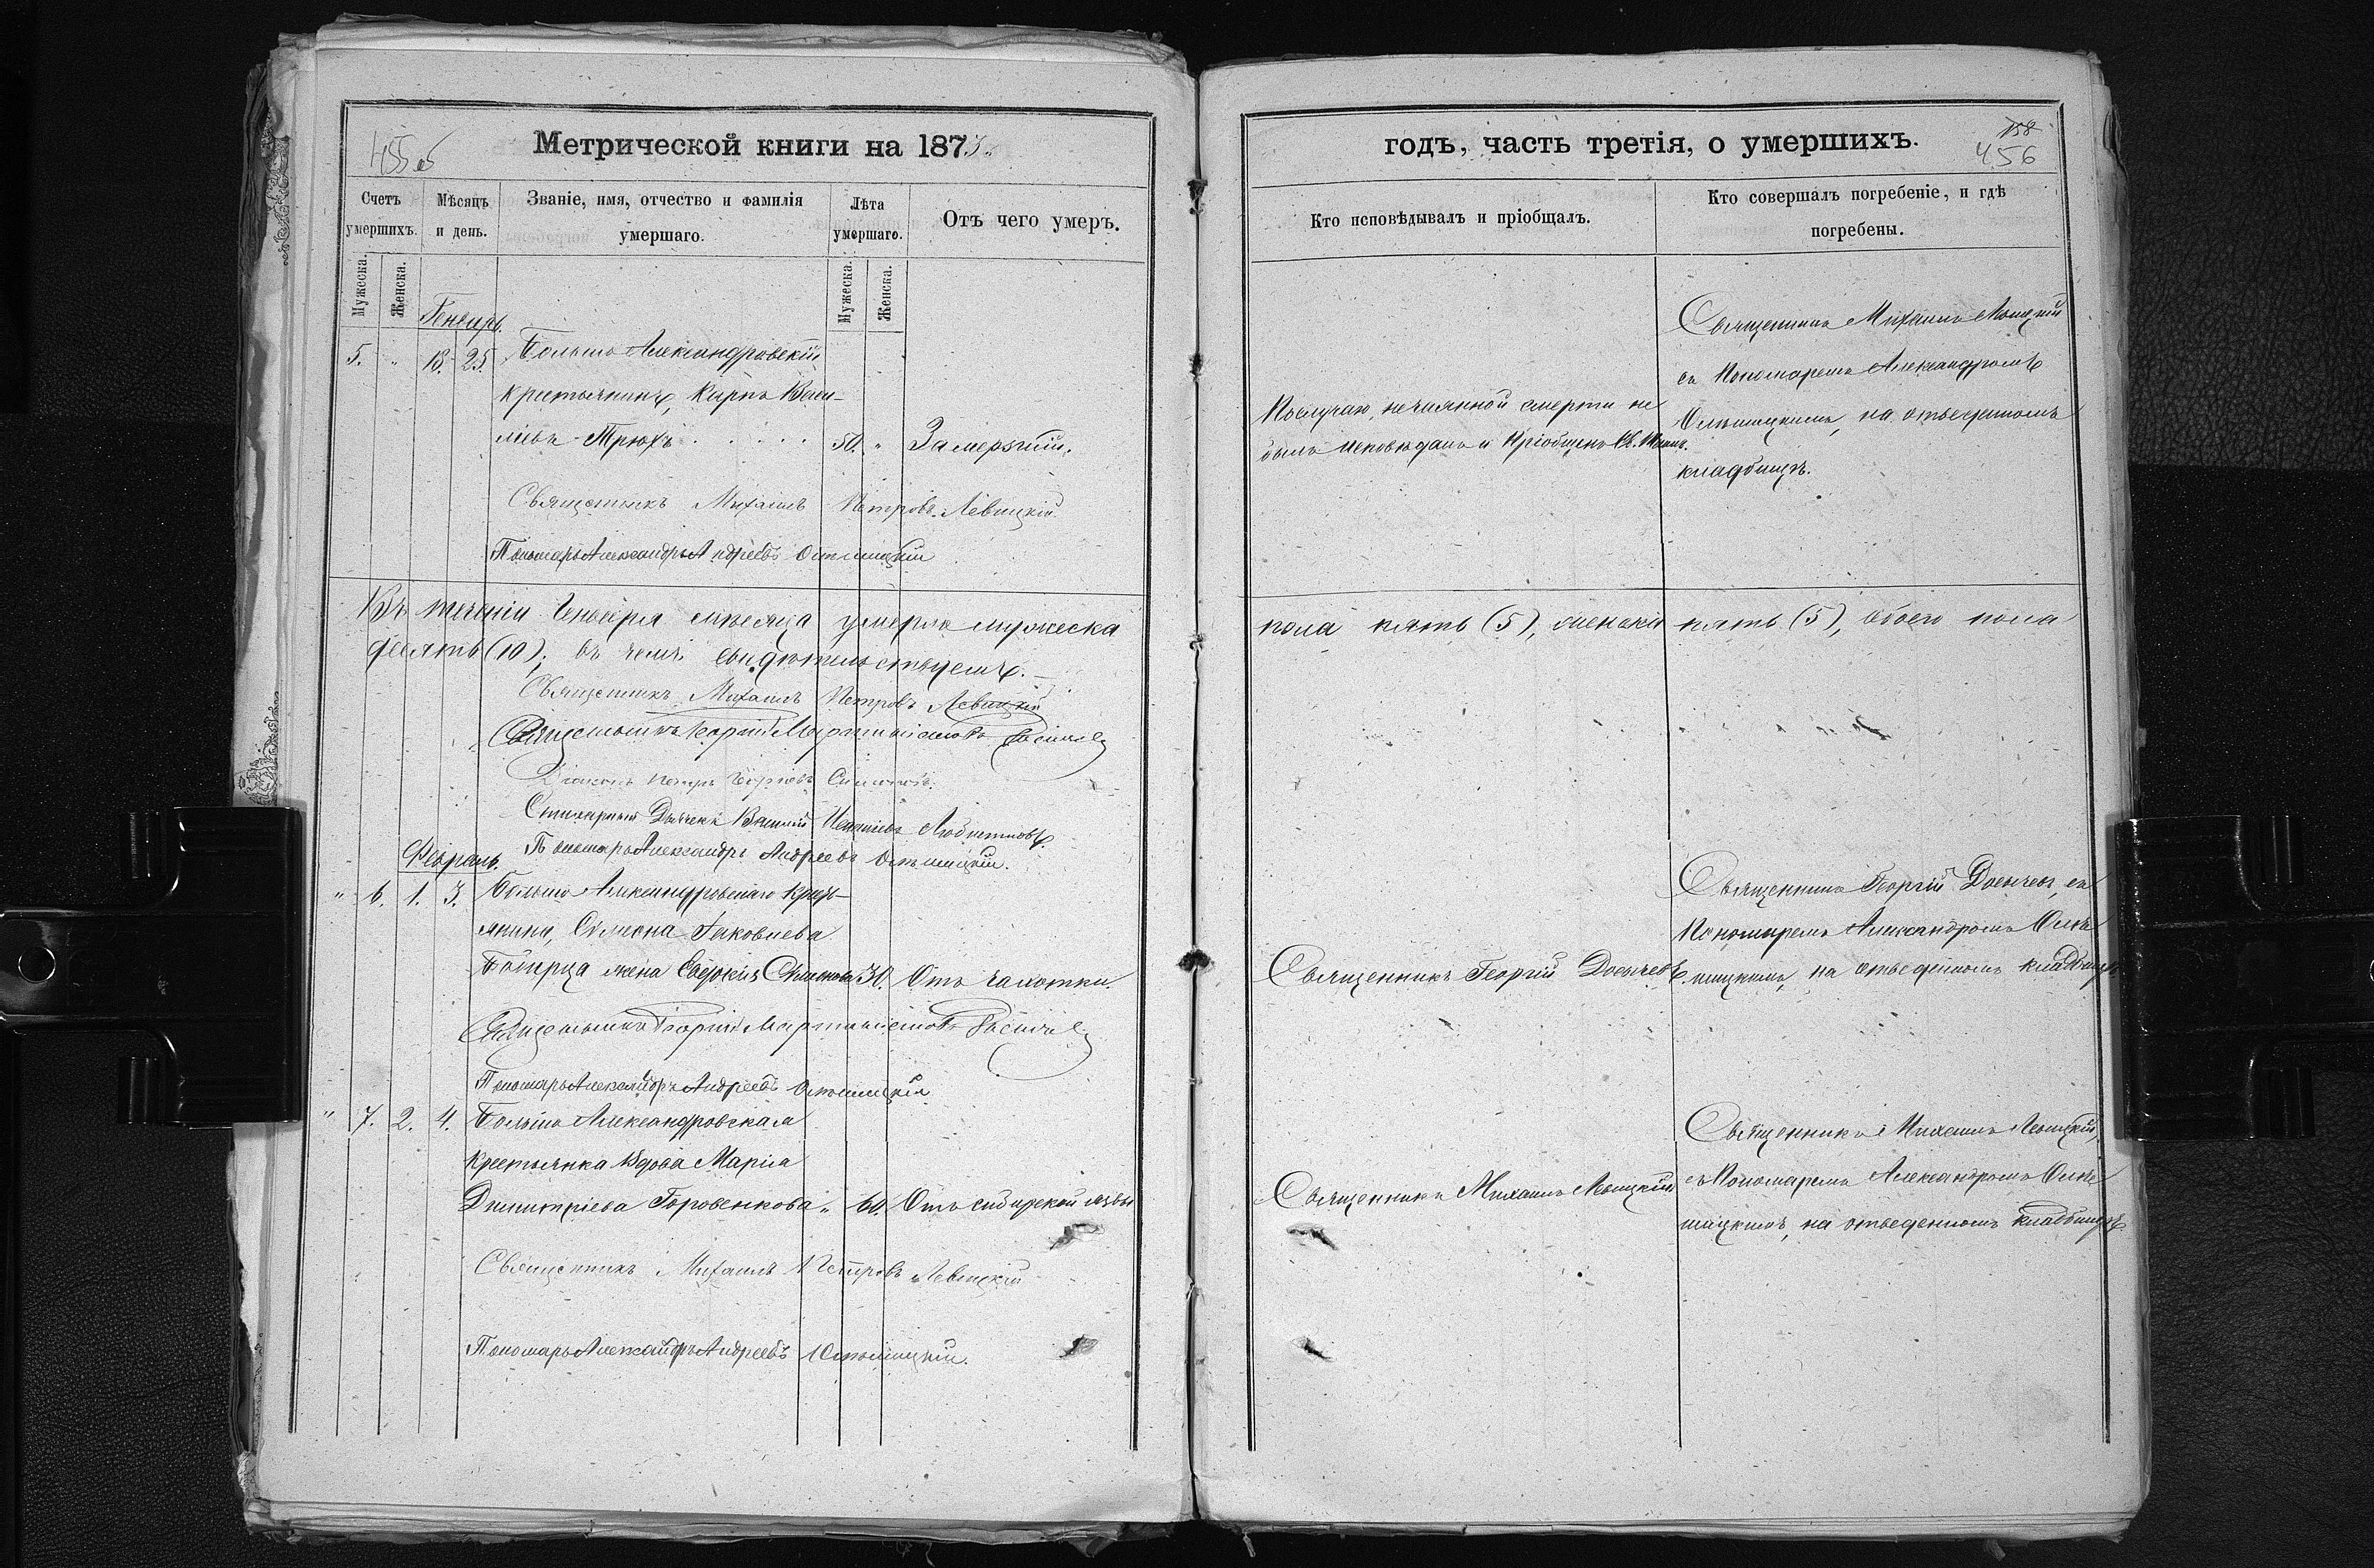 455 об
Метрической книги на 1873.
Счетъ умершихъ.
Мѣсяцъ и день.
Званіе, имя, отчество и фамилія умершаго.
Лѣта умершаго.
Отъ чего умеръ.
Мужеска.
Женска.
Мужеска.
Женска.
Генварь.
5. " 18. 25. Больше Александровскій
крестьянинъ, Карпъ Васи-
ліевъ Трюхъ . . . . . 50. " Замерзшій.
Священникъ Михаилъ Петровъ Левицкій
Пономарь Александръ Андреевъ
Въ теченіи Генваря мѣсяца умерло мужеска
десять (10); въ чемъ свидѣтельствуемъ.
Священникъ Михаилъ Петровъ Левицкій
Священникъ Георгій
Діаконъ Петръ Георгіевъ
Стихарный Дьячекъ Василій
Пономарь Александръ Андреевъ
Февраль.
" 6. 1. 3. Больше Александровскаго кресть-
янина, Симеона Іаковлева
жена Евдокія 30. Отъ чахотки.
Священникъ Георгій
Пономарь Александръ Андреевъ
" 7. 2. 4. Больше Александровская
крестьянка вдова Марія
Димитріева Горовенкова " 60. Отъ сибирской язвы
Священникъ Михаилъ Петровъ Левицкій
Пономарь Александръ Андреевъ
годъ, часть третія, о умершихъ.
158
456
Кто исповѣдывалъ и пріобщалъ.
Кто совершалъ погребеніе, и гдѣ погребены.
По случаю нечаянной смерти не
былъ исповѣданъ и пріобщенъ Св. Таинъ.
Священникъ Михаилъ Левицкій
съ Пономаремъ Александромъ
на отведенномъ
кладбищѣ.
пола пять (5), женска пять (5), обоего пола
Священникъ Георгій
Священникъ Георгій съ
Пономаремъ Александромъ
на отведенномъ кладбищѣ
Священникъ Михаилъ Левицкій
Священникъ Михаилъ Левицкій,
съ Пономаремъ Александромъ
на отведенномъ кладбищѣ